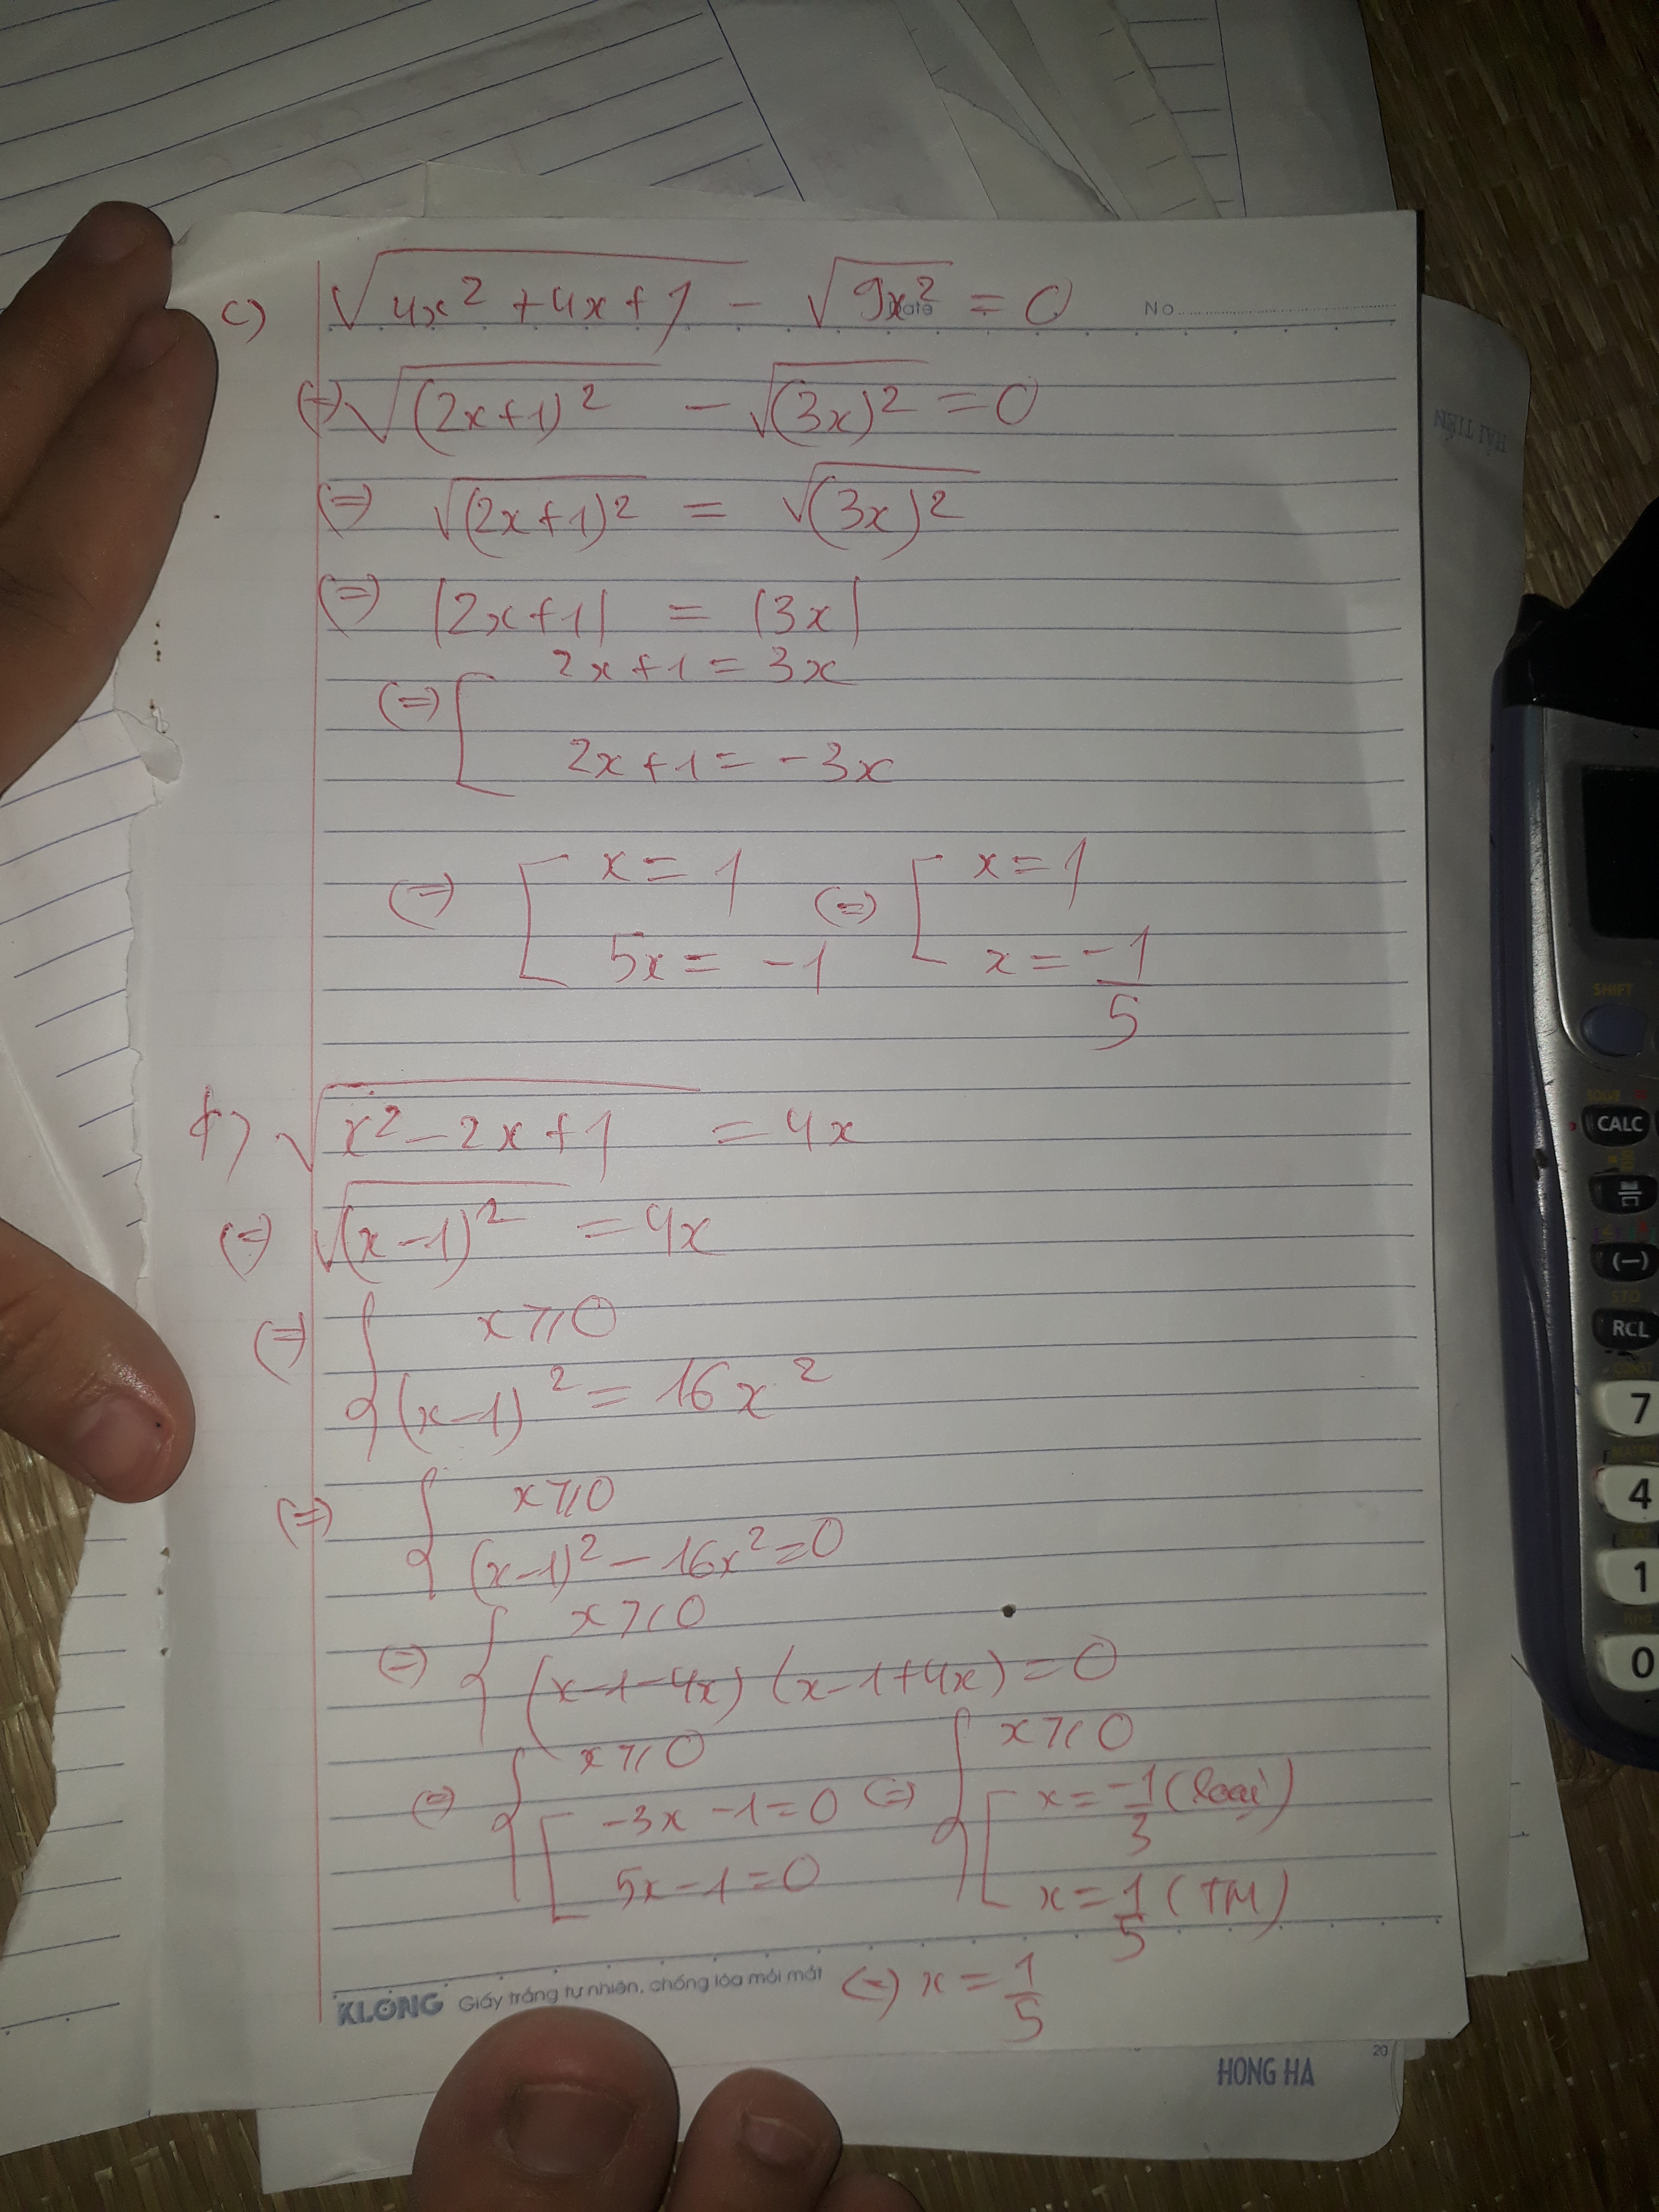 c) √(4x² + 4x + 1) - √(9x²) = 0
Date No
(=) √((2x+1)²) - √((3x)²) = 0
(=) √((2x+1)²) = √((3x)²)
(=) |2x+1| = |3x|
(=) [ 2x+1 = 3x
2x+1 = -3x
(=) [ x = 1 (=) [ x = 1
5x = -1 x = -1/5
b) √(x² - 2x + 1) = 4x
(=) √((x-1)²) = 4x
(=) { x ⩾ 0
(x-1)² = 16x²
(=) { x ⩾ 0
(x-1)² - 16x² = 0
(=) { x ⩾ 0
(x-1-4x) (x-1+4x) = 0
(=) { x ⩾ 0 (=) { x ⩾ 0
[ -3x - 1 = 0 [ x = -1/3 (loại)
5x - 1 = 0 x = 1/5 (TM)
(=) x = 1/5
KLONG Giấy trắng tự nhiên, chống lóa mỏi mắt
HONG HA
20
HẢI TIẾN
SHIFT
SOLVE
CALC
(-)
STO
RCL
7
4
1
0